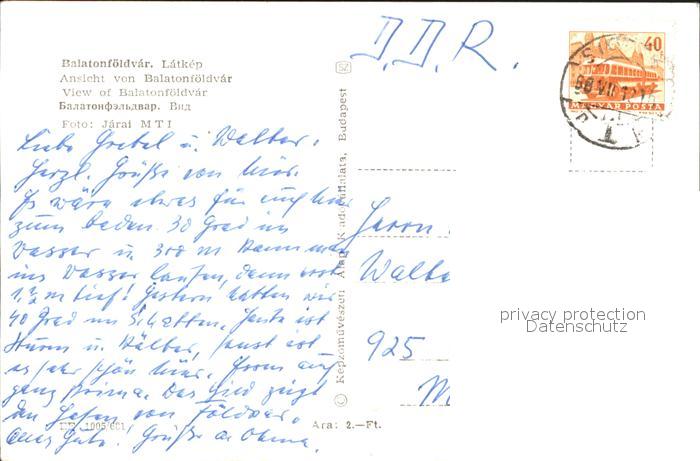 D.D.R.
Balatonföldvár. Látkép
Ansicht von Balatonföldvár
View of Balatonföldvár
Балатонфэльдвар. Вид
Foto: Járai MTI
Liebe Gretel u. Walter.
Herzl. Grüße von hier.
Es wäre etwas für euch hier
zum baden. 30 Grad im
Wasser u. 300 m kann man
ins Wasser laufen, dann erst
1.½ m tief! Gestern hatten wir
40 Grad im Schatten. Heute ist
Sturm u. Kälter, sonst ist
es sehr schön hier. Essen auch
ganz prima. Das Bild zeigt
den Hafen von Földvar.
Alles Gute. Grüße a. Oma.
Képzőművészeti Alap Kiadóvállalata, Budapest
40
MAGYAR POSTA
Herrn
Walte
925
M
privacy protection
Datenschutz
Ára: 2.—Ft.